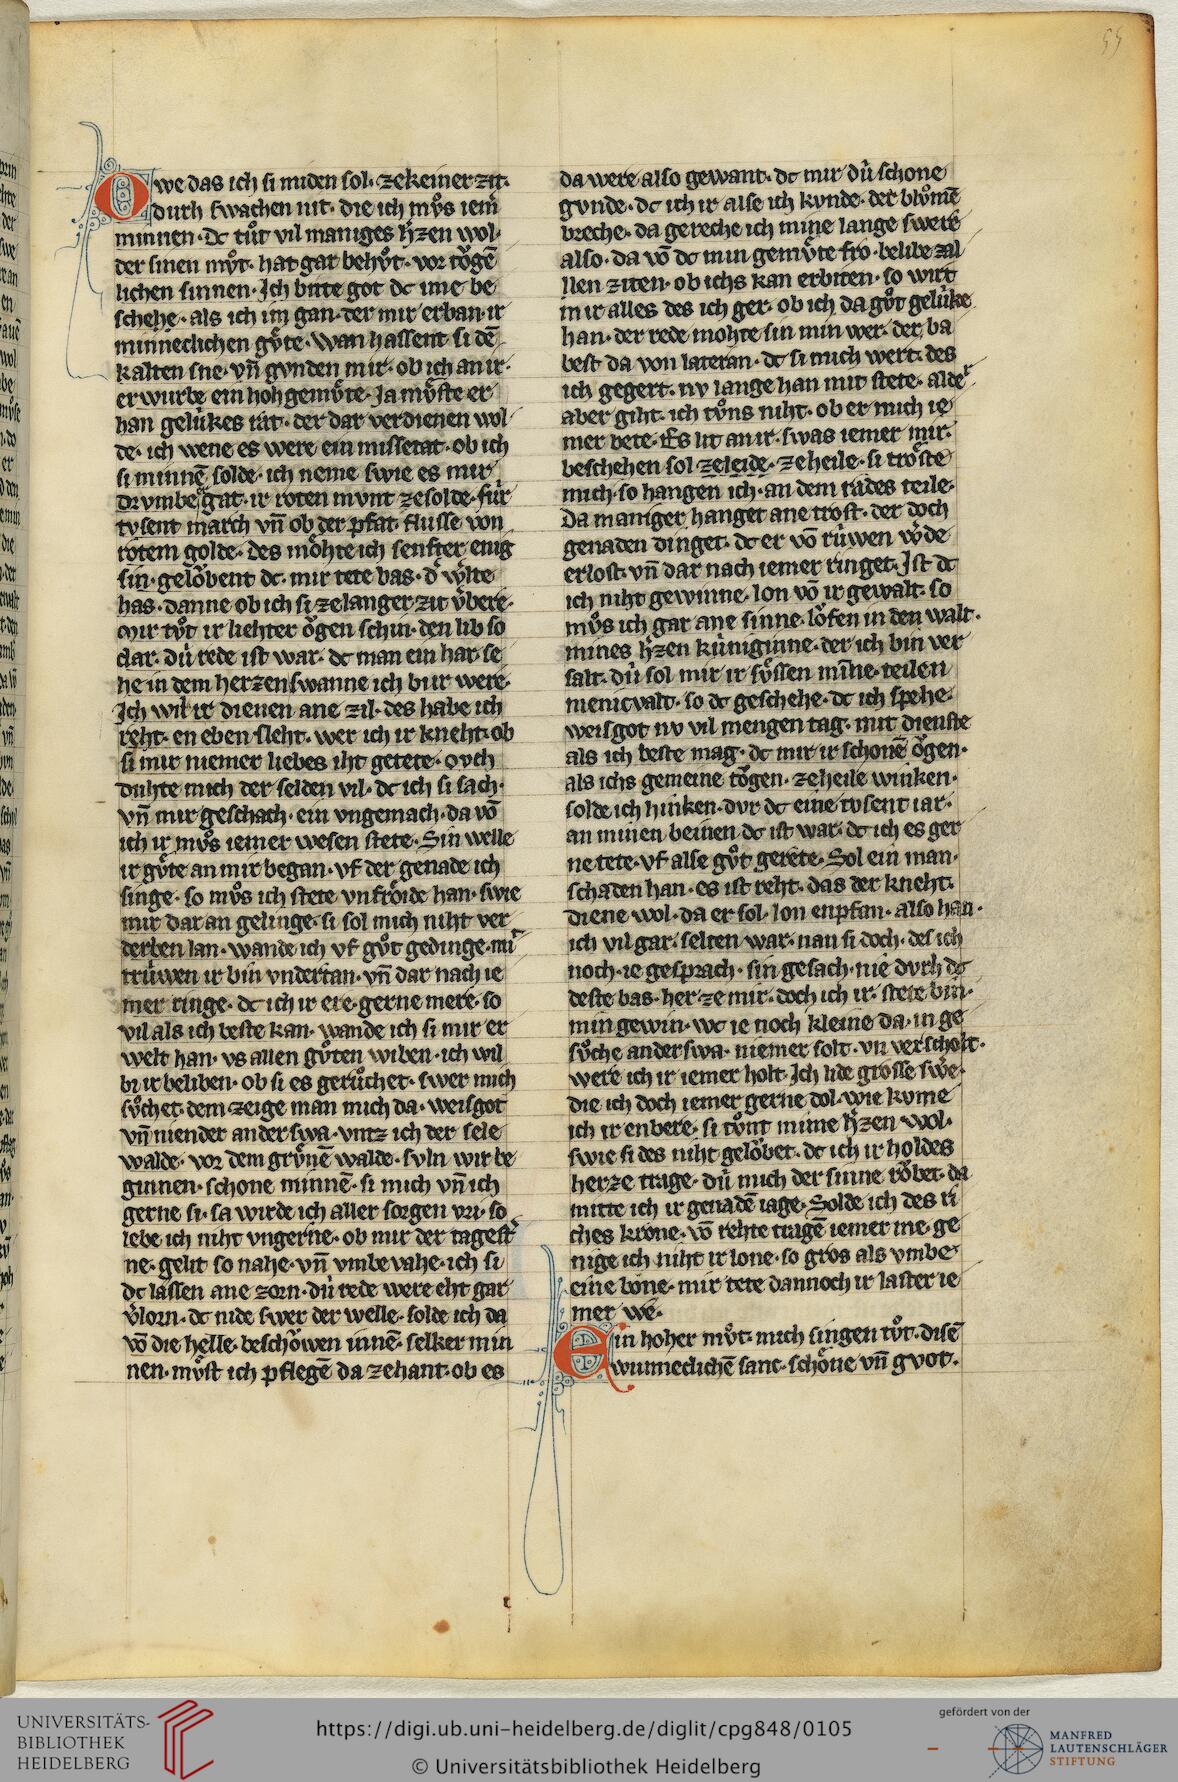 55
Owe das ich si miden sol· zekeiner zit·
durh swachen nit· die ich mvͦs iem̄
minnen· dc tuͦt vil maniges h̄zen wol·
der sinen mvͦt· hat gar behvͦt· vor toͮgē
lichen sinnen· Ich bitte got dc ime be
schehe· als ich im gan· der mir erban· ir
minneclichen gvͤte· wan hassent si dē
kalten sne· vn̄ gvnden mir· ob ich an ir·
erwurbe ein hohgemvͤte· Ja mvͤste er
han gelúkes rat· der dar verdienen wol
de· ich wene es were ein missetat· ob ich
si minnē solde· ich neme swie es mir
drvmbe gat· ir roten mvnt zesolde· fúr
tvsent march vn̄ ob der pfat· flusse von
rotem golde· des moͤhte ich senfter enig
sin· geloͮbent dc· mir tete bas· d̄ w̄lte
has· danne ob ich si zelanger zit v̄bere·
Mir tvͦt ir liehter oͮgen schin· den lib so
clar· dú rede ist war· dc man ein har se
he in dem herzen swanne ich bi ir were·
Ich wil ir dienen ane zil· des habe ich
reht· en eben sleht· wer ich ir kneht· ob
si mir niemer liebes iht getete· ovch
duhte mich der selden vil· dc ich si sach·
vn̄ mir geschach· ein vngemach· da vō
ich ir mvͦs iemer wesen stete· Sin welle
ir gvͤte an mir began· vf der genade ich
singe· so mvͦs ich stete vnfroͤide han· swie
mir dar an gelinge· si sol mich niht ver
derben lan· wande ich vf gvͦt gedinge· mit
trúwen ir bin vndertan· vn̄ dar nach ie
mer ringe· dc ich ir ere· gerne mere· so
vil als ich beste kan· wande ich si mir er
welt han· vs allen gvͦten wiben· ich wil
bi ir beliben· ob si es gerůchet· swer mich
svͦchet· dem zeige man mich da· weisgot
vn̄ niender anderswa· vntz ich der sele
walde· vor dem grvͤnē walde· svln wir be
ginnen· schone minnē· si mich vn̄ ich
gerne si· sa wirde ich aller sorgen vri· so
lebe ich niht vngerne· ob mir der tagest̄
ne· gelit so nahe· vn̄ vmbevahe· ich si
dc lassen ane zorn· dú rede were eht gar
v̄lorn· dc nide swer der welle· solde ich da
vō die helle· beschoͮwen innē· selker min
nen· mvͤst ich pflegē da zehant· ob es
da were also gewant· dc mir dú schone
gvnde· dc ich ir alse ich kvnde· der blvͦmē
breche· da gereche ich mine lange swere
also· da vō dc min gemvͤte fro· belibe zal
llen ziten· ob ichs kan erbiten· so wirt
mir alles des ich ger· ob ich da gvͦt gelúke
han· der rede mohte sin min wer· der ba
best da von lateran· dc si mich wert· des
ich gegert· nv lange han mit stete· aldē
aber giht· ich tvͦns niht· ob er mich ie
mer bete· Es lit an ir· swas iemer mir·
beschehen sol zeleide· zeheile· si troͤste
mich· so hangen ich· an dem rades teile·
Da maniger hanget ane trost· der doch
genaden dinget· dc er vō rúwen w̄de
erlost· vn̄ dar nach iemer ringet· Ist dc
ich niht gewinne· lon vō ir gewalt· so
mvͦs ich gar ane sinne· loͮfen in den walt·
mines h̄zen kúniginne· der ich bin ver
salt· dú sol mir ir sv́ssen mīne· teilen
menicvalt· so dc geschehe· dc ich spehe·
weisgot nv vil mengen tag· mit dienste
als ich beste mag· dc mir ir schonē oͮgen·
als ichs gemeine toͮgen· zeheile winken·
solde ich hinken· dvr dc eine tvsent iar·
an minen beinen dc ist war· dc ich es ger
ne tete· vf alse gvͦt gerete· Sol ein man·
schaden han· es ist reht· das der kneht·
diene wol· da er sol· lon enpfan· also han·
ich vil gar· selten war· nan si doch· des ich
noch· ie gesprach· sin gesach· nie dvrh dc
deste bas· her ze mir· doch ich ir· stete bin·
min gewin· wc ie noch kleine da· in ge
svͦche anderswa· niemer solt· vn verscholt·
were ich ir iemer holt· Ich lide grosse swē·
die ich doch iemer gerne dol· wie kvme
ich ir enbere· si toͮnt mime h̄zen wol·
swie si des niht geloͮbet· dc ich ir holdes
herze trage· dú mich der sinne roͮbet· da
mitte ich ir genadē iage· Solde ich des ri
ches krone· vō rehte tragē iemer me· ge
nige ich niht ir lone· so gros als vmbe
eine bone· mir tete dannoch ir laster ie
mer we·
Ein hoher mvͦt· mich singen tvͦt· disē
wunneclichē sanc· schoͤne vn̄ gvot·
UNIVERSITÄTS-
BIBLIOTHEK
HEIDELBERG
https://digi.ub.uni-heidelberg.de/diglit/cpg848/0105
© Universitätsbibliothek Heidelberg
gefördert von der
MANFRED
LAUTENSCHLÄGER
STIFTUNG